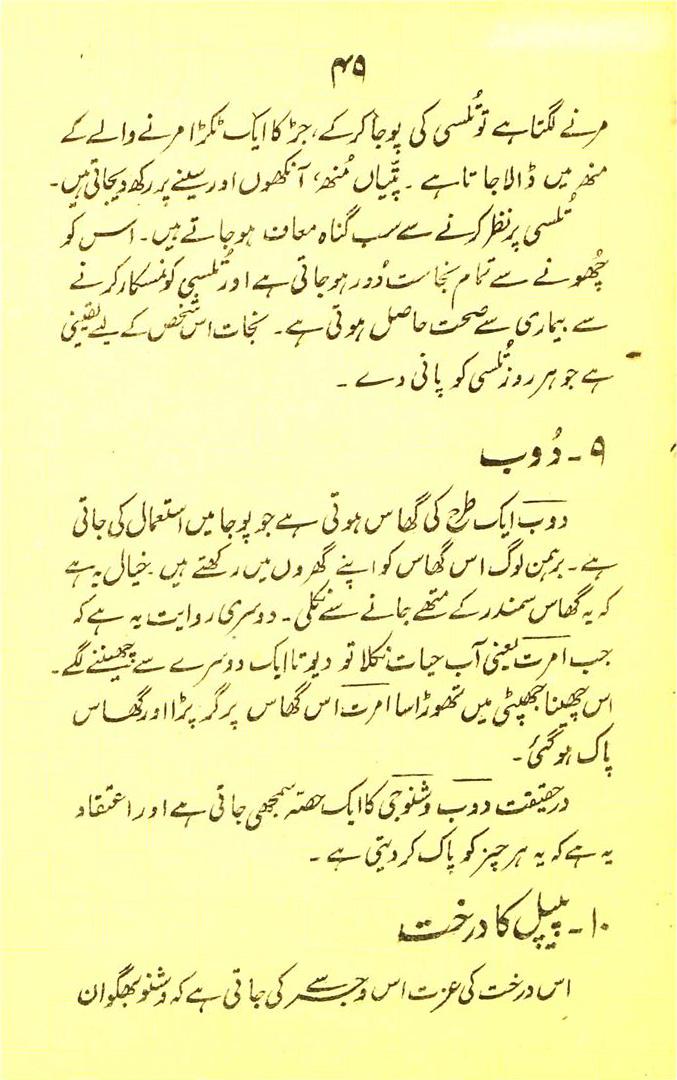 ۴۹
مرنے لگتا ہے تو تُلسی کی پوجا کرکے، جڑ کا ایک ٹکڑا مرنے والے کے
منھ میں ڈالا جاتا ہے ۔ پتّیاں مُنھ، آنکھوں اور سینے پر رکھ دیجاتی ہیں۔
تُلسی پر نظر کرنے سے سب گناہ معاف ہو جاتے ہیں۔ اس کو
چُھونے سے تمام نجاست دُور ہو جاتی ہے اور تُلسی کو نمسکار کرنے
سے بیماری سے صحت حاصل ہوتی ہے۔ نجات اس شخص کے لیے یقینی
ہے جو ہر روز تُلسی کو پانی دے ۔
۹ ۔ دُوب
دوب ایک طرح کی گھاس ہوتی ہے جو پوجا میں استعمال کی جاتی
ہے۔ برہمن لوگ اس گھاس کو اپنے گھروں میں رکھتے ہیں۔ خیال یہ ہے
کہ یہ گھاس سمندر کے متھے جانے سے نکلی۔ دوسری روایت یہ ہے کہ
جب امرت یعنی آب حیات نکلا تو دیوتا ایک دوسرے سے چھیننے لگے۔
اس چھینا جھپٹی میں تھوڑا سا امرت اس گھاس پر گر پڑا اور گھاس
پاک ہوگئی۔
درحقیقت دوب وشنوجی کا ایک حصّہ سمجھی جاتی ہے اور اعتقاد
یہ ہے کہ یہ ہر چیز کو پاک کر دیتی ہے ۔
۱۰ ۔ پیپل کا درخت
اس درخت کی عزت اس وجہ سے کی جاتی ہے کہ وشنو بھگوان